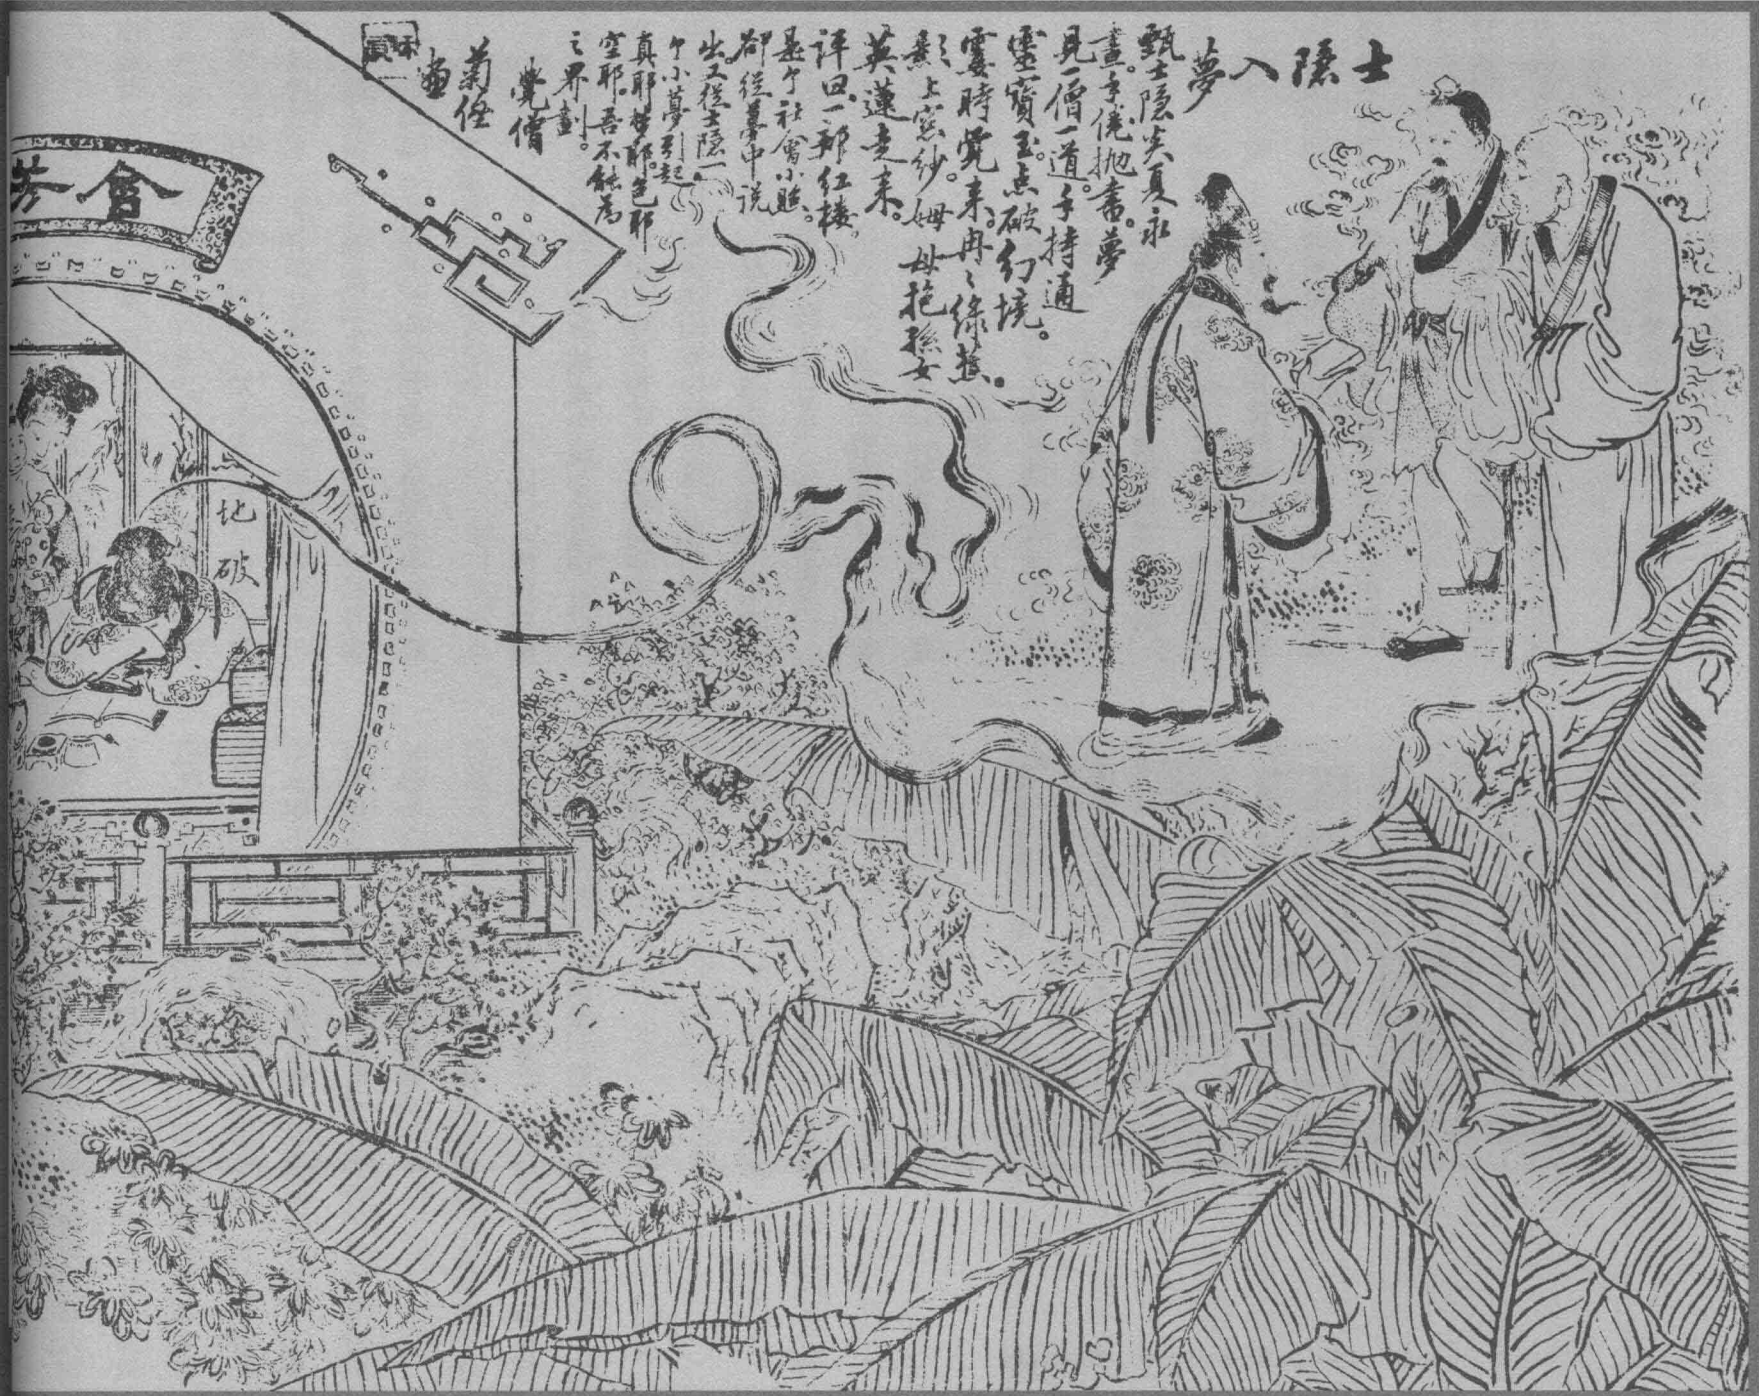 士隱入
夢
甄士隐炎夏永
晝。手倦抛書。夢
見一僧一道。手持通
靈寶玉。点破幻境。
霎時覚来。冉々绿蕉。
影上窓纱。姆母抱孫女
英蓮走来。
评曰。一部红楼。
是个社會小照。
卻従夢中说
出。又従士隐一。
个小夢引起
真耶梦耶。色耶
空耶。吾不能為
之界劃。
覺僧
菊侄
画
會芳
地破